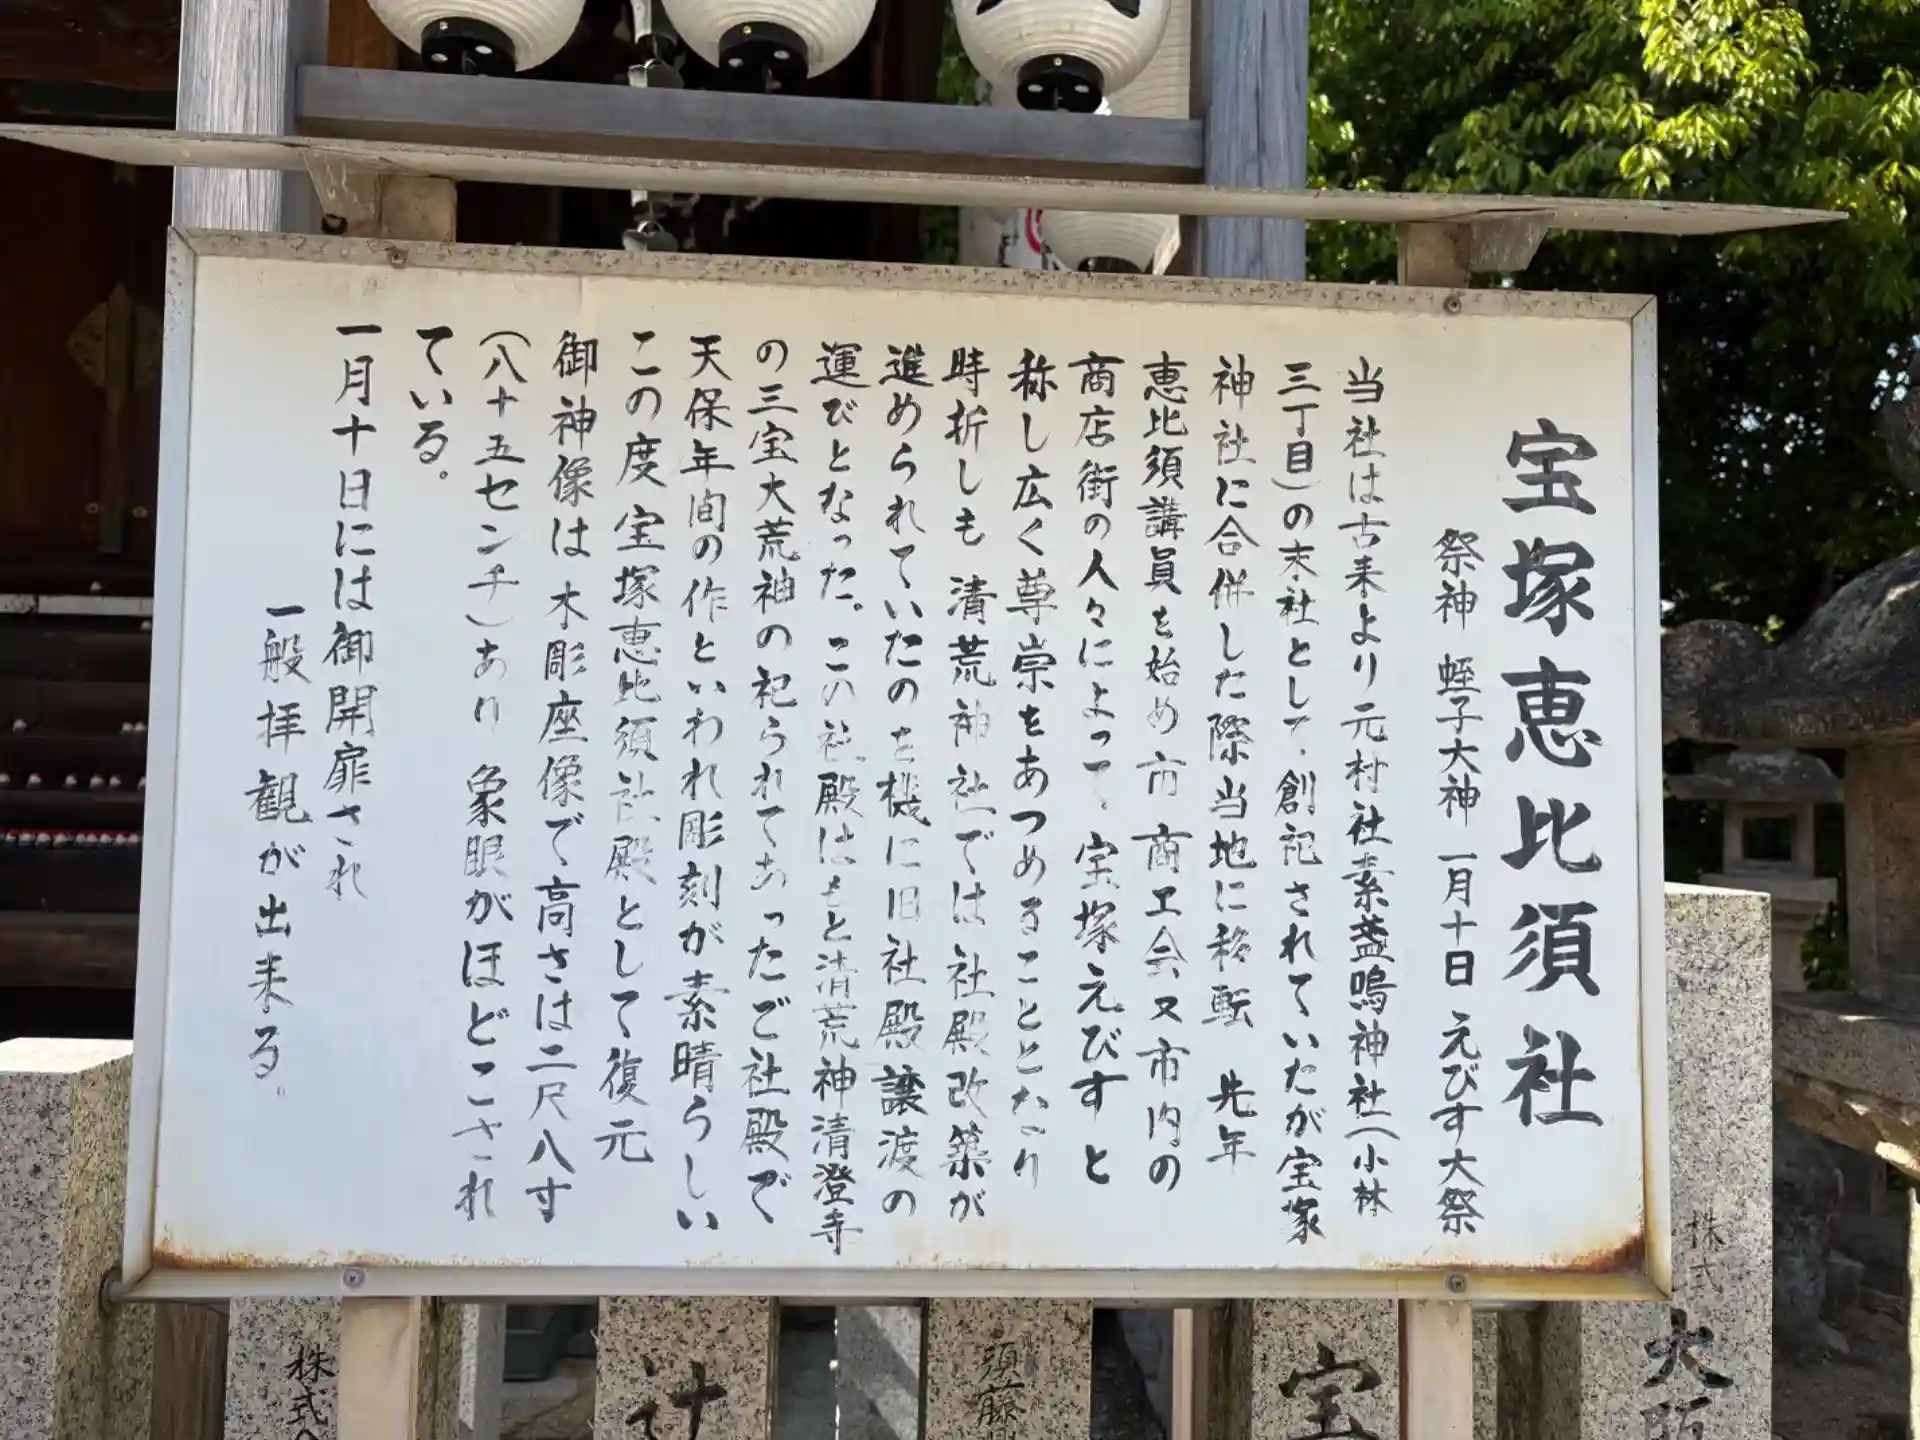 宝塚恵比須社
祭神 蛭子大神 一月十日 えびす大祭
当社は古来より元村社素盞嗚神社(小林
三丁目)の末社として創祀されていたが宝塚
神社に合併した際当地に移転 先年
恵比須講員を始め市商工会又市内の
商店街の人々によって宝塚えびすと
称し広く尊崇をあつめることとなり
時折しも 清荒神社では社殿改築が
進められていたのを機に旧社殿譲渡の
運びとなった。この社殿はもと清荒神清澄寺
の三宝大荒神の祀られてあったご社殿で
天保年間の作といわれ彫刻が素晴らしい
この度 宝塚恵比須社殿として復元
御神像は木彫座像で高さは二尺八寸
(八十五センチ)あり 象眼がほどこされ
ている。
一月十日には御開扉され
一般拝観が出来る。
株式
大阪
宝
須藤
辻
株式